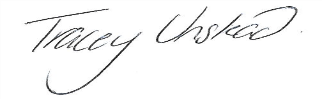 Tracey Unstad